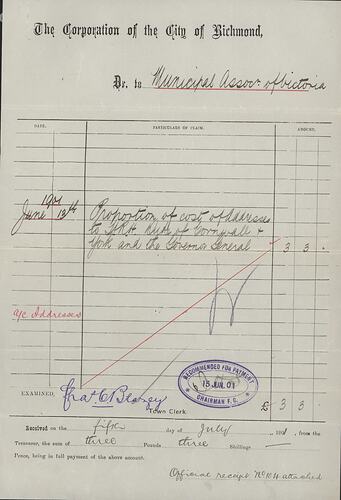 The Corporation of the City of Richmond,
Dr. to Municipal Assocn. of Victoria
DATE. PARTICULARS OF CLAIM. AMOUNT.
1901
June 13th Proportion of cost of Addresses
to T.R.H. Duke of Cornwall &
York and the Governor General 3 3 -
a/c Addresses
RECOMMENDED FOR PAYMENT
15 JUL 01
CHAIRMAN F. C.
EXAMINED, Chas C Blazey
Town Clerk £ 3 3
Received on the fifth day of July 1901, from the
Treasurer, the sum of three Pounds three Shillings
Pence, being in full payment of the above account.
Official receipt No 104 attached